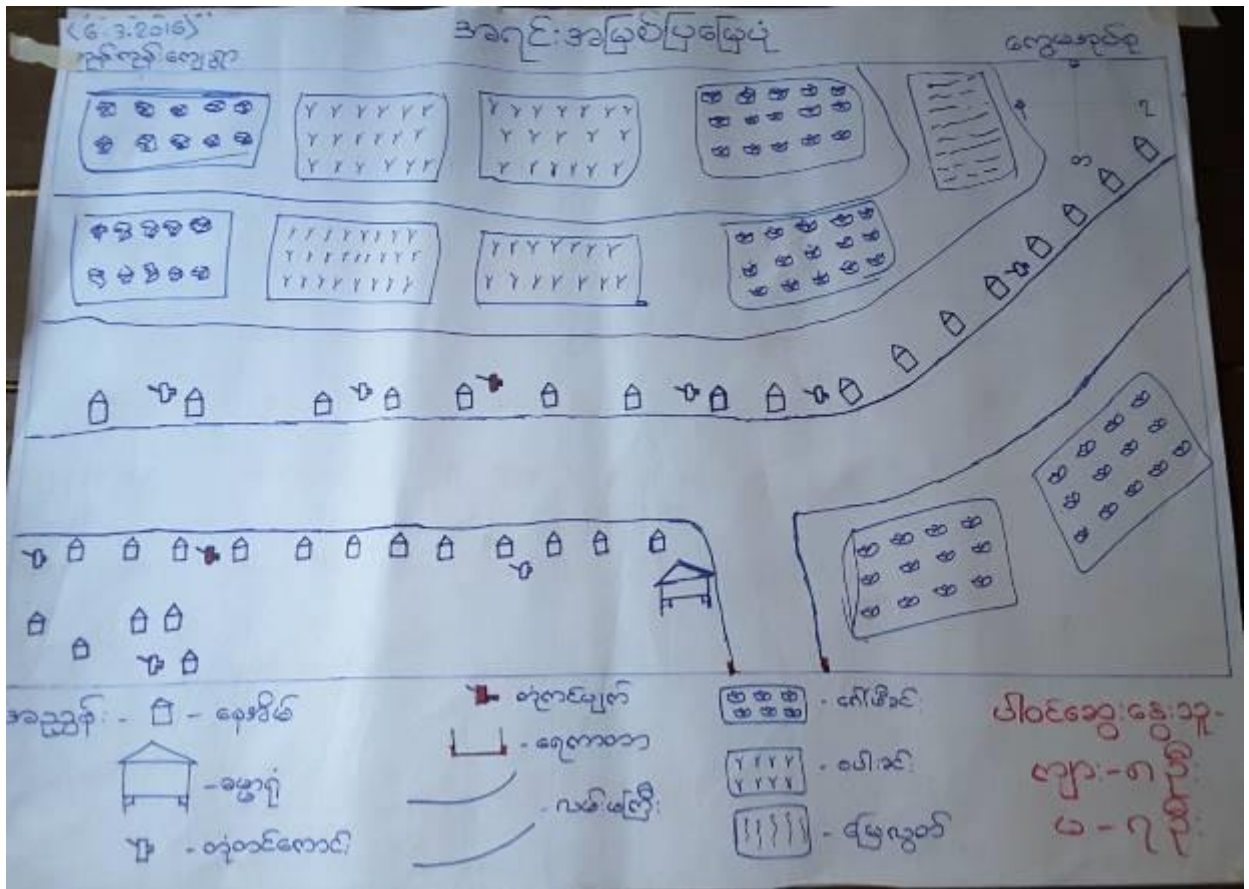 (6.3.2016)
အရင်းအမြစ်ပြမြေပုံ
ကျေးရွာ
အညွှန်း - - နေအိမ်
- ဓမ္မာရုံ
- တုံကင်ကောင်း
တုံကင်ပျက်
- ရေကာတာ
- လမ်းမကြီး
- ဂေါ်ဖီခင်း
- စပါးခင်း
- မြေလွတ်
ပါဝင်ဆွေးနွေးသူ-
ကျား - ၈ဦး
မ - ၇ဦး